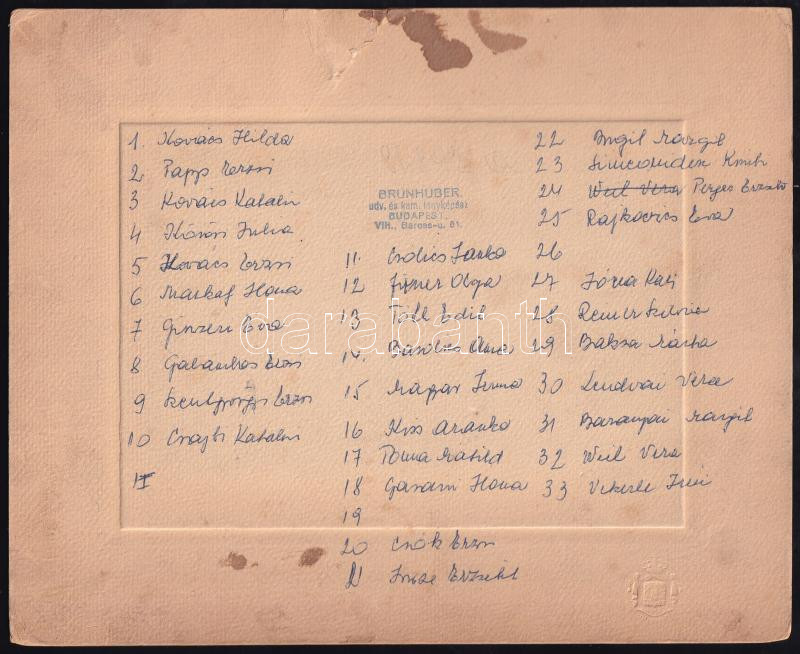 1. Kovács Hilda
2 Papp Erzsi
3 Kovács Katalin
4 Kőrösi Julia
5 Kovács Erzsi
6 Markaf Ilona
7 Ginzeri Eva
8 Galambos Erzsi
9 Szentgyörgyi Erzsi
10 Csajti Katalin
11
BRUNHUBER.
udv. és kam. fényképész
BUDAPEST,
VIII., Baross-u. 61.
11. Csolics Janka
12 Olga
13 Tóth Edit
14. Basilius Anna
15 Magyar Irma
16 Kiss Aranka
17 Matild
18 Garami Ilona
19
20 Csók Erzsi
21 Imre Erzsébet
22 Margit
23
24 Weil Vera Perjes Erzsébet
25 Rajkovics Eva
26
27 Józsa Kati
28 Reiner Szilvia
29 Baksa Márta
30 Lendvai Vera
31 Baranyai Margit
32 Weil Vera
33 Vekerle Irén
darabanth